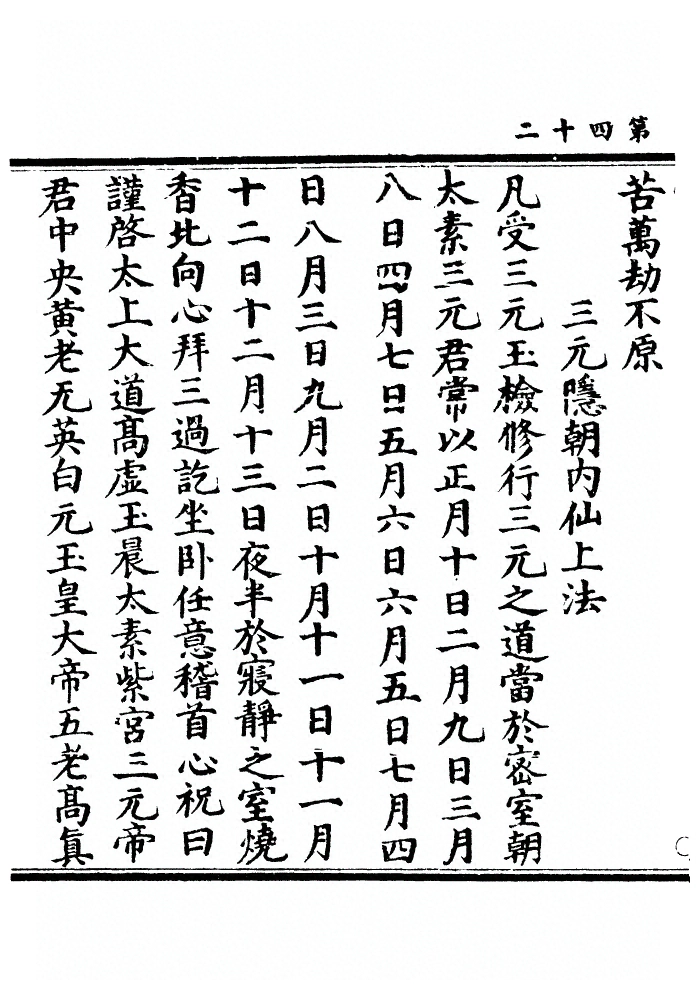 第四十二
苦萬劫不原
三元隱朝內仙上法
凡受三元玉檢修行三元之道當於密室朝
太素三元君常以正月十日二月九日三月
八日四月七日五月六日六月五日七月四
日八月三日九月二日十月十一日十一月
十二日十二月十三日夜半於寢靜之室燒
香北向心拜三過訖坐卧任意稽首心祝曰
謹啓太上大道髙虛玉晨太素紫宮三元帝
君中央黃老无英白元玉皇大帝五老髙眞